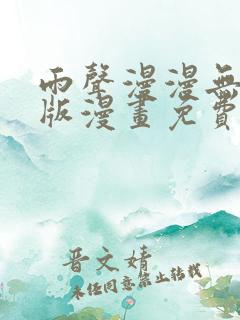 雨聲漫漫無
版漫畫免費
晋文婧
未经同意禁止转载